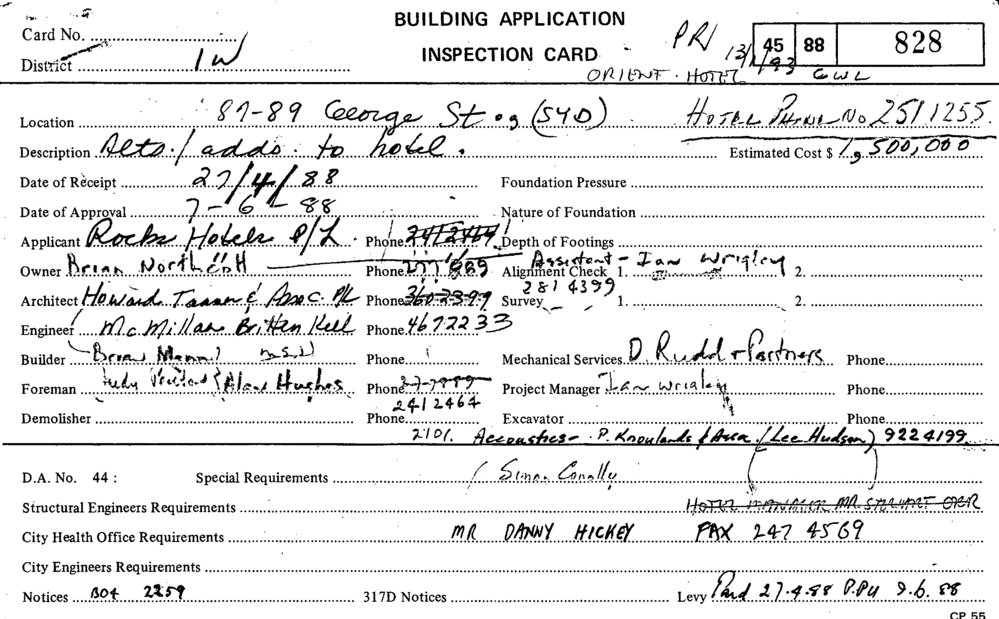 BUILDING APPLICATION
Card No. PRI 13/1/93 45 88 828
INSPECTION CARD
District 1W ORIENT HOTEL GWL
Location 87-89 George St., (SYD) HOTEL PHONE No 2511255.
Description Alts./adds. to hotel. Estimated Cost $ 1,500,000
Date of Receipt 27/4/88 Foundation Pressure
Date of Approval 7-6-88 Nature of Foundation
Applicant Rocks Hotels P/L. Phone Depth of Footings
Assistant - Ian Wrigley
Owner Brian Phone Alignment Check 1. 2.
2814399
Architect Howard Tanner & Assoc. P/L Phone 360 2399 Survey 1. 2.
Engineer McMillan Britten Kell Phone 4672233
Builder Brian Phone Mechanical Services D. Rudd & Partners Phone
Foreman Judy & Alan Hughes Phone Project Manager Ian Wrigley Phone
2412464
Demolisher Phone Excavator Phone
2101. Accoustics - P. Knowlands & Assoc. (Lee Hudson) 9224199
D.A. No. 44: Special Requirements Simon Conolly
Structural Engineers Requirements HOTEL MANAGER MR. STEWART
City Health Office Requirements MR DANNY HICKEY FAX 247 4569
City Engineers Requirements
Notices BO4 2259 317D Notices Levy Paid 27.4.88 9.6.88
CP 55